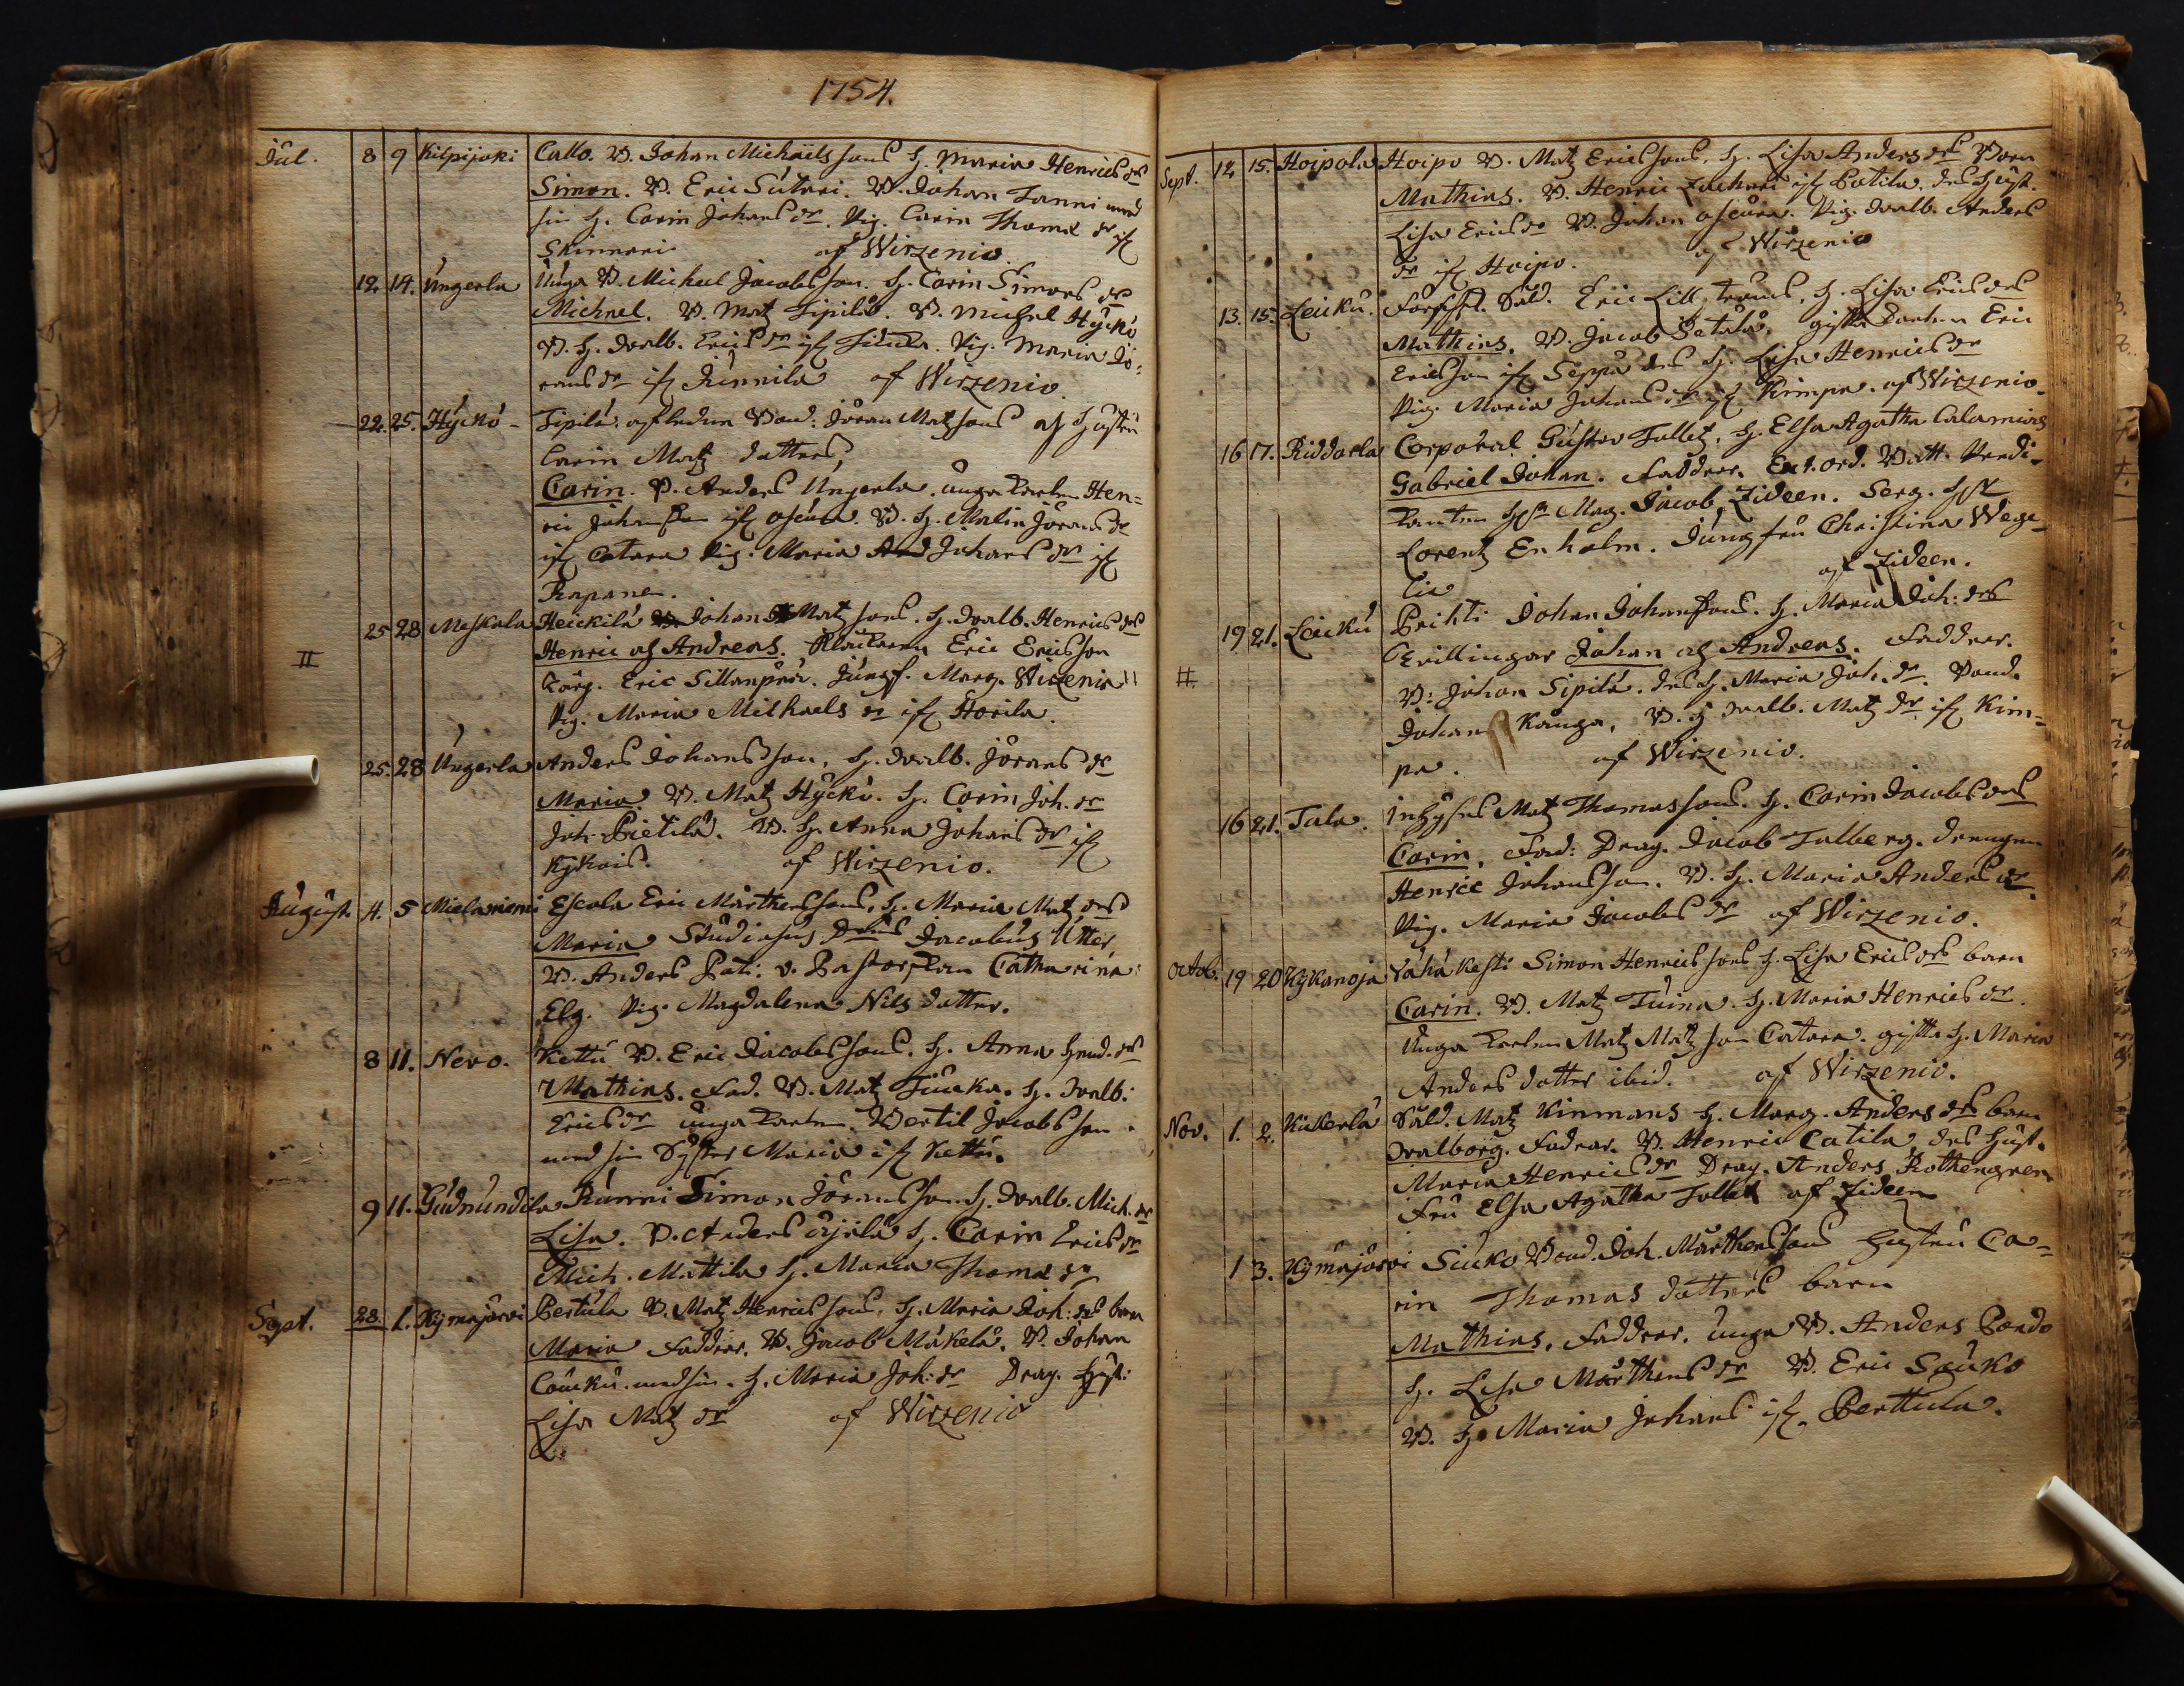 1754.
Jul. 8 9 Kilpijoki Callo. B. Johan Michaels sons h. Maria Henrics dr
Simon. B. Eric Sutari. B. Johan Tanni med
sin h. Carin Johans dr. Pig. Carin Thomæ dr if
Skinnari af Wirzenio.
12. 14. Ungerla Unga B. Michel Jacobsson. h. Carin Simons dr
Michael. B. Matz Sipilä. B. Michel Hyckö
B. h. Walb. Erics dr if. Pig. Maria Jö-
rans dr if Junnila af Wirzenio.
22. 25. Hyckö Sipilä afledne Bond. Jöran Matz sons af hustru
Carin Matz dotters,
Carin. B. Anders Ungerla. unga Karlen Hen-
ric Johansson if. B. h. Malin Jörans dr
if Catara Pig. Maria Johans dr if
Rapane.
II 25 28 Meskala Heickilä Johan Matz sons. h. Walb. Henrics drs
Henric och Andreas. Klockaren Eric Ericsson
Eric Sillanpää. Jungf. Marg. Wirzenia
Pig. Maria Michaels dr if Horila.
25. 28 Ungerla Anders Johansson, h. Walb. Jörans dr
Maria. B. Matz Hyckö. h. Carin Joh. dr
Joh. Pietilä. B. h. Anna Johans dr if
af Wirzenio.
August. 4. 5 Mielanieni Escola Eric Mårthens sons, h. Maria Matz drs
Maria Studiosus Jacobus Utter,
B. Anders Catharina
Elg. Pig. Magdalena Nils dotter.
8 11. Nevo. Kettu B. Eric Jacobs sons. h. Anna Hend. drs
Mathias. Fad. B. Matz. h. Walb:
Erics dr unga Karlen Bertil Jacobsson
med sin Syster Maria if Kettu.
9 11. Gudnundila Runni Simon Jöransson h. Walb. Mich. dr
Lisa. B. Anders Äijälä h. Carin Erics dr
Mich. Mattila h. Maria Thomæ dr
Sept. 28. 1. Kymäjärvi Bertula B. Matz Henrics sons. h. Maria Joh: drs barn
Maria Faddrar. B. Jacob Mäkelä. B. Johan
med sin h. Maria Joh: dr Drag. Hust:
Lisa Matz dr af Wirzenio
Sept. 12 15. Hoipola Hoipo B. Matz Erics sons. h. Lisa Anders drs Barn
Mathias. B. Henric if Catila. des hust.
Lisa Erics dr B. Johan. Pig. Walb. Anders
dr if Hoipo. af Wirzenio
13. 15. Leicku. Sald. Eric, h. Lisa Erics drs
Mathias. B. Jacob. gifta Karlen Eric
Ericsson if Seppä des h. Lisa Henrics dr
Pig. Maria Johans dr if Kimpa. af Wirzenio.
16 17. Riddarla Corporal Gustav Tallet, h. Elsa Agatha Calamnius
Gabriel Johan. Faddrar. Ext. ord. Batt. Predi-
kanten Hr Mag. Jacob Zideen. Serg. Hr
Lorentz Enholm. Jungfru Christina Wege-
lia af Zideen.
# 19 21. Leicku Prihti Johan Johanssons. h. Maria Joh: drs
Tvillingar Johan och Andreas. Faddrar.
B: Johan Sipilä. des h. Maria Joh. dr. Bond.
Johan Kånga, B. h Walb. Matz dr. if Kim-
pa. af Wirzenio.
16 21. Tula. inhyses Matz Thomas sons. h. Carin Jacobs drs
Carin. Fad: Drag. Jacob Talberg. Drengen
Henric Johansson. B. h. Maria Anders dr.
Pig. Maria Jacobs dr af Wirzenio.
Octob. 19 20 Kykanoja Vähä Kesti Simon Henrics sons h. Lisa Erics drs barn
Carin. B. Matz Tuina. h. Maria Henrics dr.
Unga Karlen Matz Matzson Catara. gifta h. Maria
Anders dotter ibid. af Wirzenio.
Nov. 1. 2. Kukerla Sald. Matz Kinmans h. Marg. Anders drs barn
Walborg. Fadrar. B. Henric Catila des hust.
Maria Henrics dr Drag. Anders Rothengren
Fru Elsa Agatha Tallet af Zideen
1 3. Kymäjärvi Siuko Bond. Joh. Mårthens sons hustru Ca-
rin Thomas dotters barn
Mathias. Faddrar. unga B. Anders Pondo
h. Lisa Mårthens dr B. Eric Sauko
B. h. Maria Johans if. Berttula.